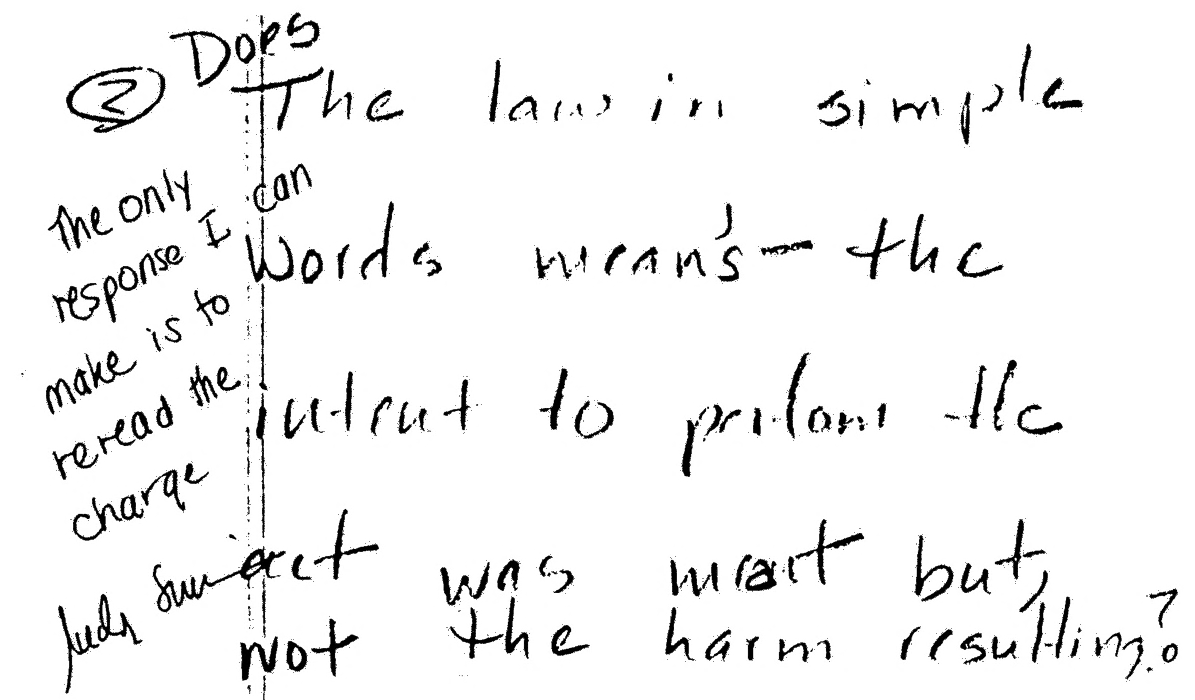 ② Does
The law in simple
words means - the
intent to perform the
act was meant but,
not the harm resulting.?
The only
response I can
make is to
reread the
charge